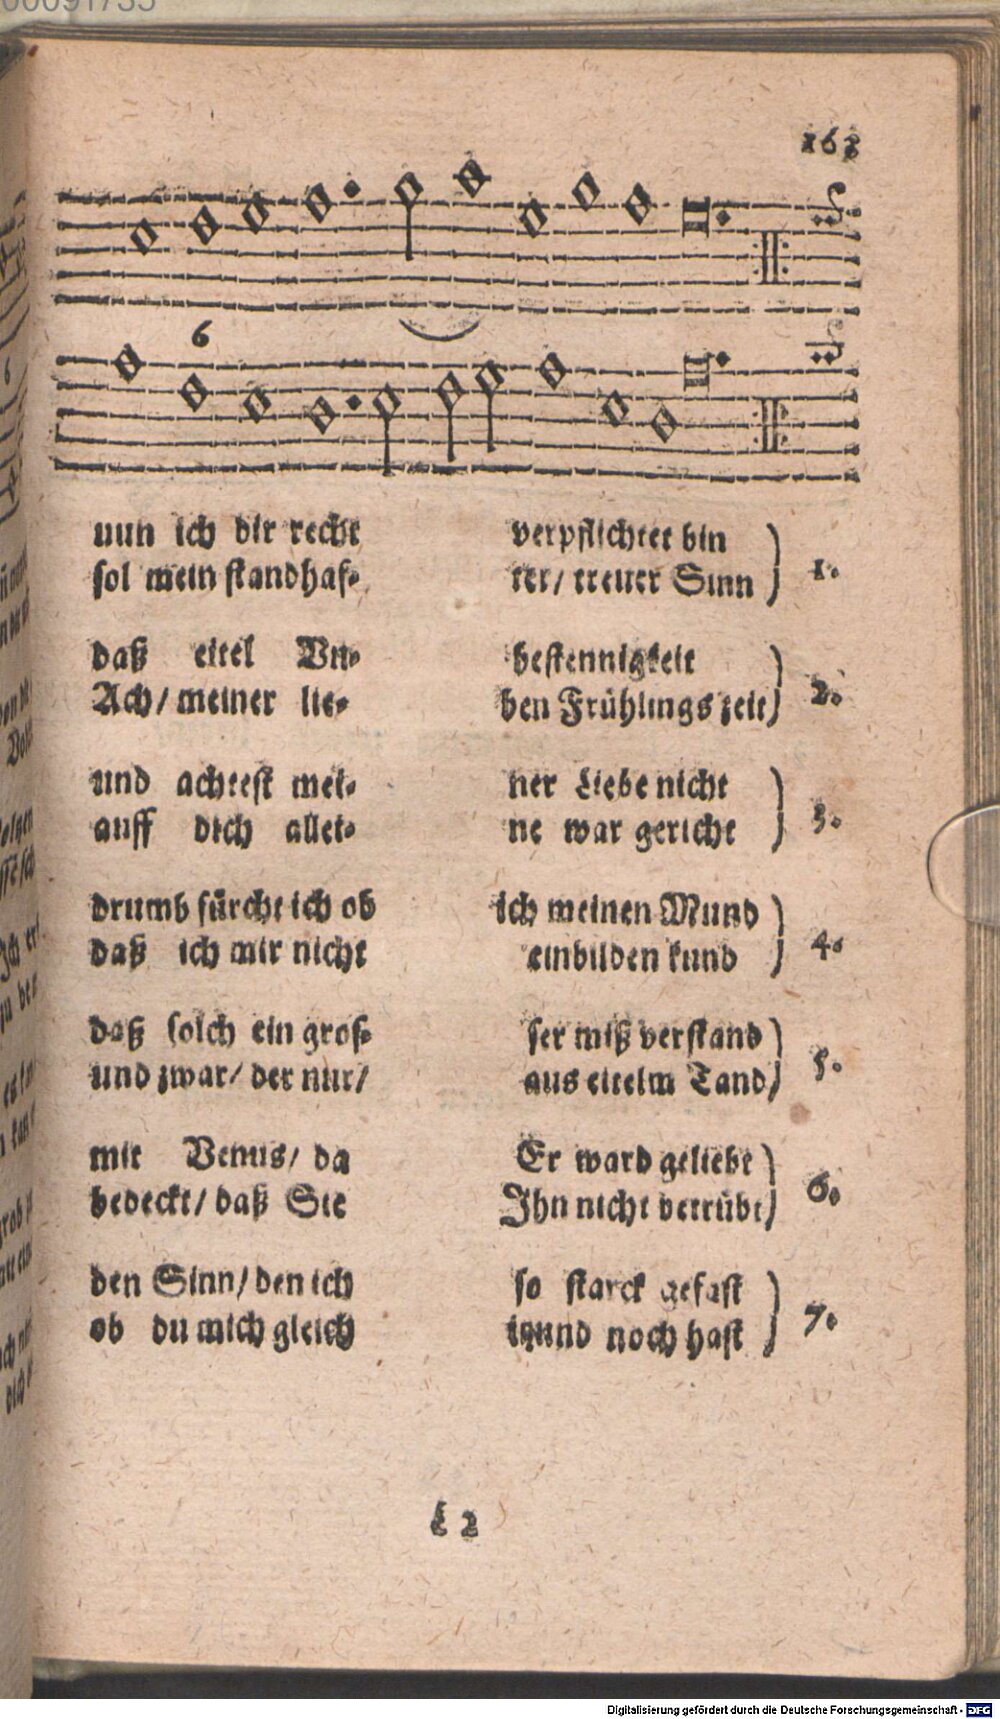 163
6
nun ich dir recht verpflichtet bin
sol mein standhaf- ter/ treuer Sinn
1.
daß eitel Vn- bestennigkeit
Ach/ meiner lie- ben Frühlings zeit
2.
und achtest mei- ner Liebe nicht
auff dich allei- ne war gericht
3.
drumb fürcht ich ob ich meinen Mund
daß ich mir nicht einbilden kund
4.
daß solch ein gros- ser miß verstand
und zwar/ der nur/ aus eitelm Tand
5.
mit Venus/ da Er ward geliebt
bedeckt/ daß Sie Ihn nicht betrübt
6.
den Sinn/ den ich so starck gefast
ob du mich gleich itzund noch hast
7.
L 2
Digitalisierung gefördert durch die Deutsche Forschungsgemeinschaft - DFG